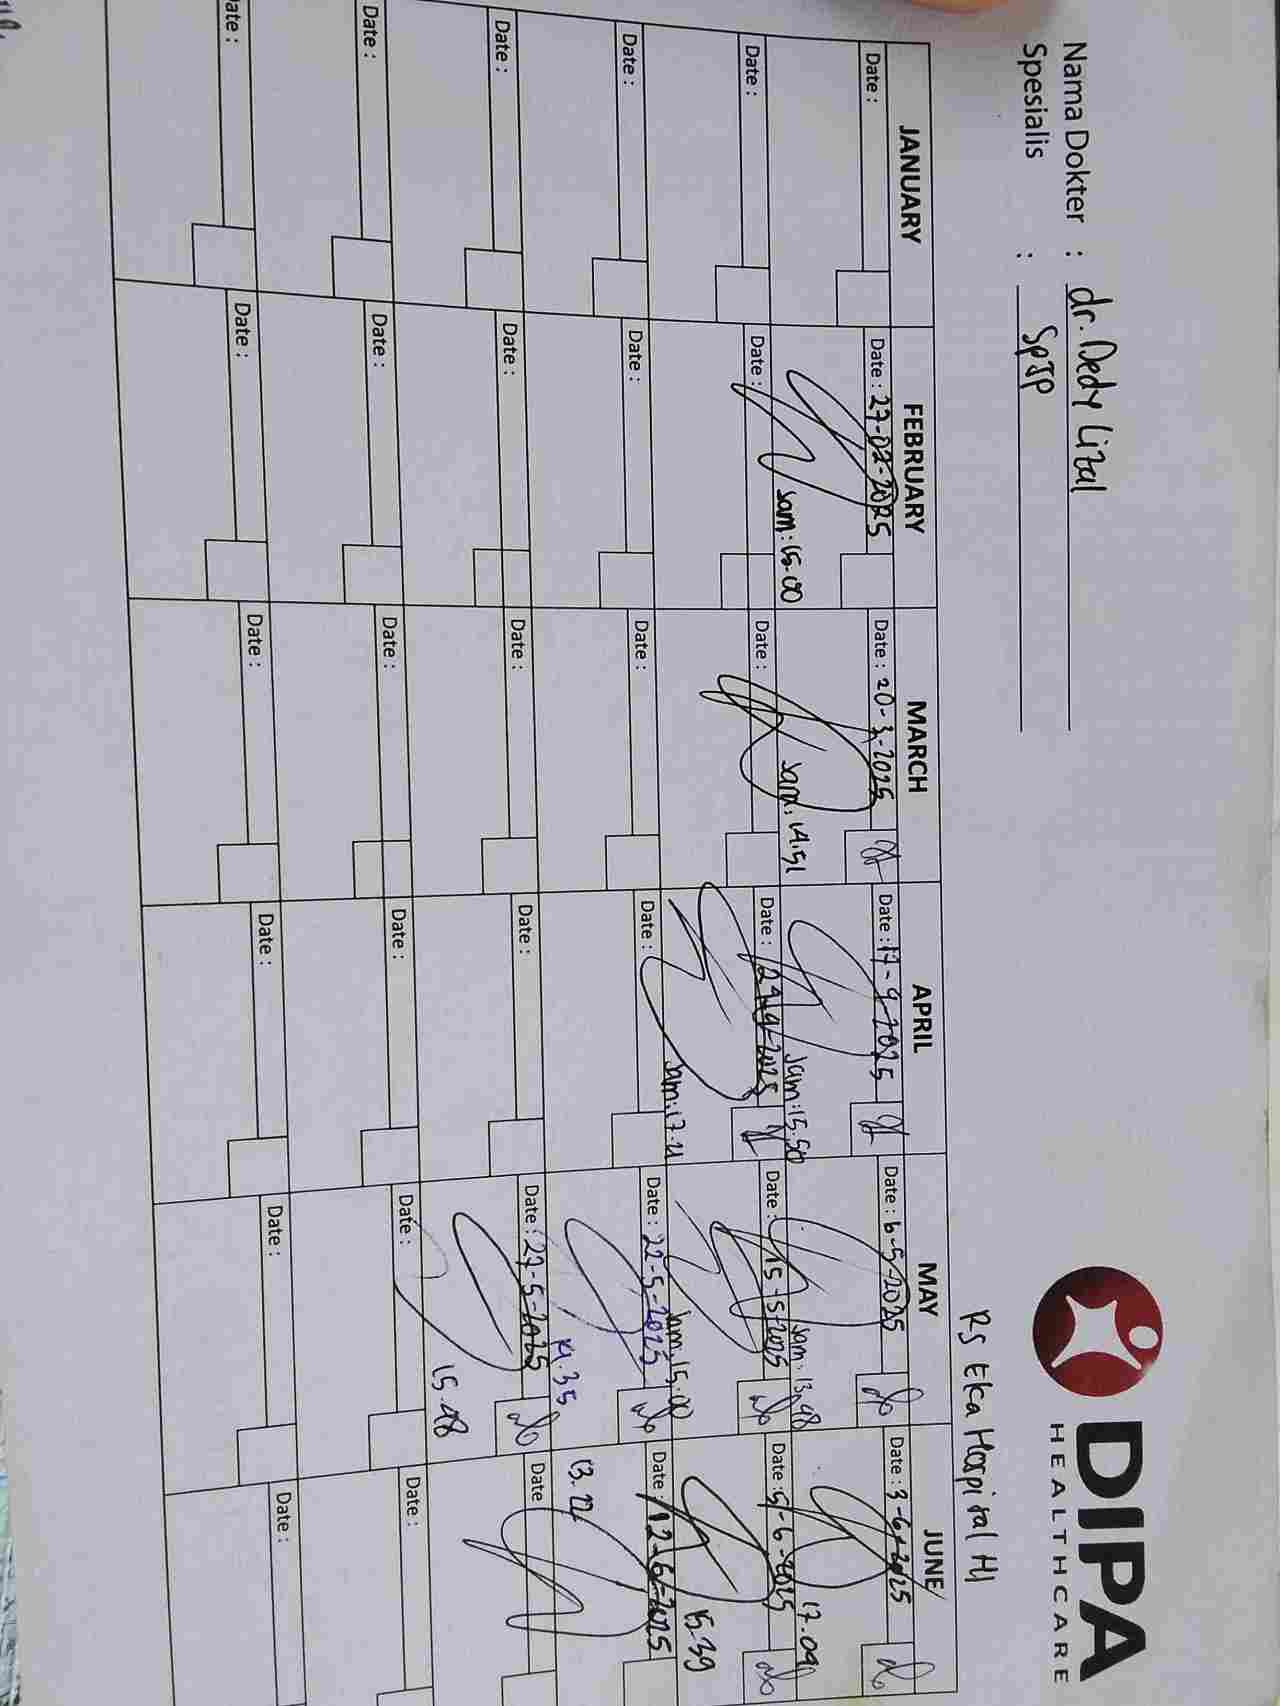 DIPA
HEALTHCARE
Nama Dokter : dr. Dedy Lizal
Spesialis : SpJP
RS Eka Hospital
JANUARY FEBRUARY MARCH APRIL MAY JUNE
Date : Date : 27-02-2025 Date : 20-3-2025 Date : 17-4-2025 Date : 6-5-2025 Date : 3-6-2025
Jam : 15.00 Jam : 14.51 Jam : 15.50 Jam : 13.48 17.09
Date : Date : Date : Date : Date : 15-5-2025 Date : 5-6-2025
Jam : 17.21 Jam : 15.00 15.39
Date : Date : Date : Date : Date : 22-5-2025 Date : 12-6-2025
14.35 13.22
Date : Date : Date : Date : Date : 27-5-2025 Date
15.48
Date : Date : Date : Date : Date : Date :
Date : Date : Date : Date : Date : Date :